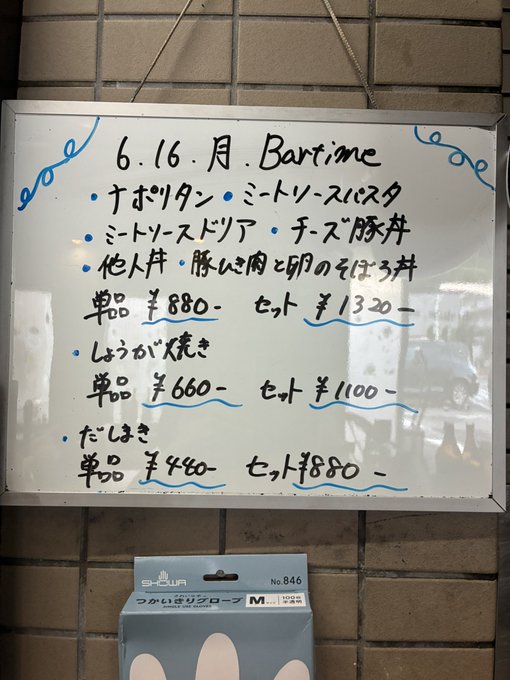 6.16.月.Bartime
・ナポリタン・ミートソースパスタ
・ミートソースドリア・チーズ豚丼
・他人丼・豚ひき肉と卵のそぼろ丼
単品 ¥880- セット ¥1320-
・しょうが焼き
単品 ¥660- セット ¥1100-
・だしまき
単品 ¥440- セット¥880-
SHOWA
No.846
つかいきりグローブ M 100枚 半透明
SINGLE USE GLOVES